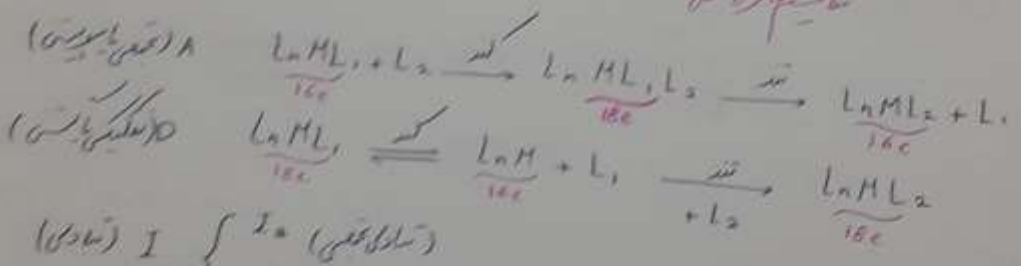 A (تجمعی یا پیوستی) LnML₁ + L₂ کند → LnML₁L₂ تند → LnML₂ + L₁
16e 18e 16e
D (تفکیکی یا گسستی) LnML₁ کند ⇌ LnM + L₁ تند → +L₂ LnML₂
18e 16e 18e
(تبادلی) I { Ia (تبادلی تجمعی)